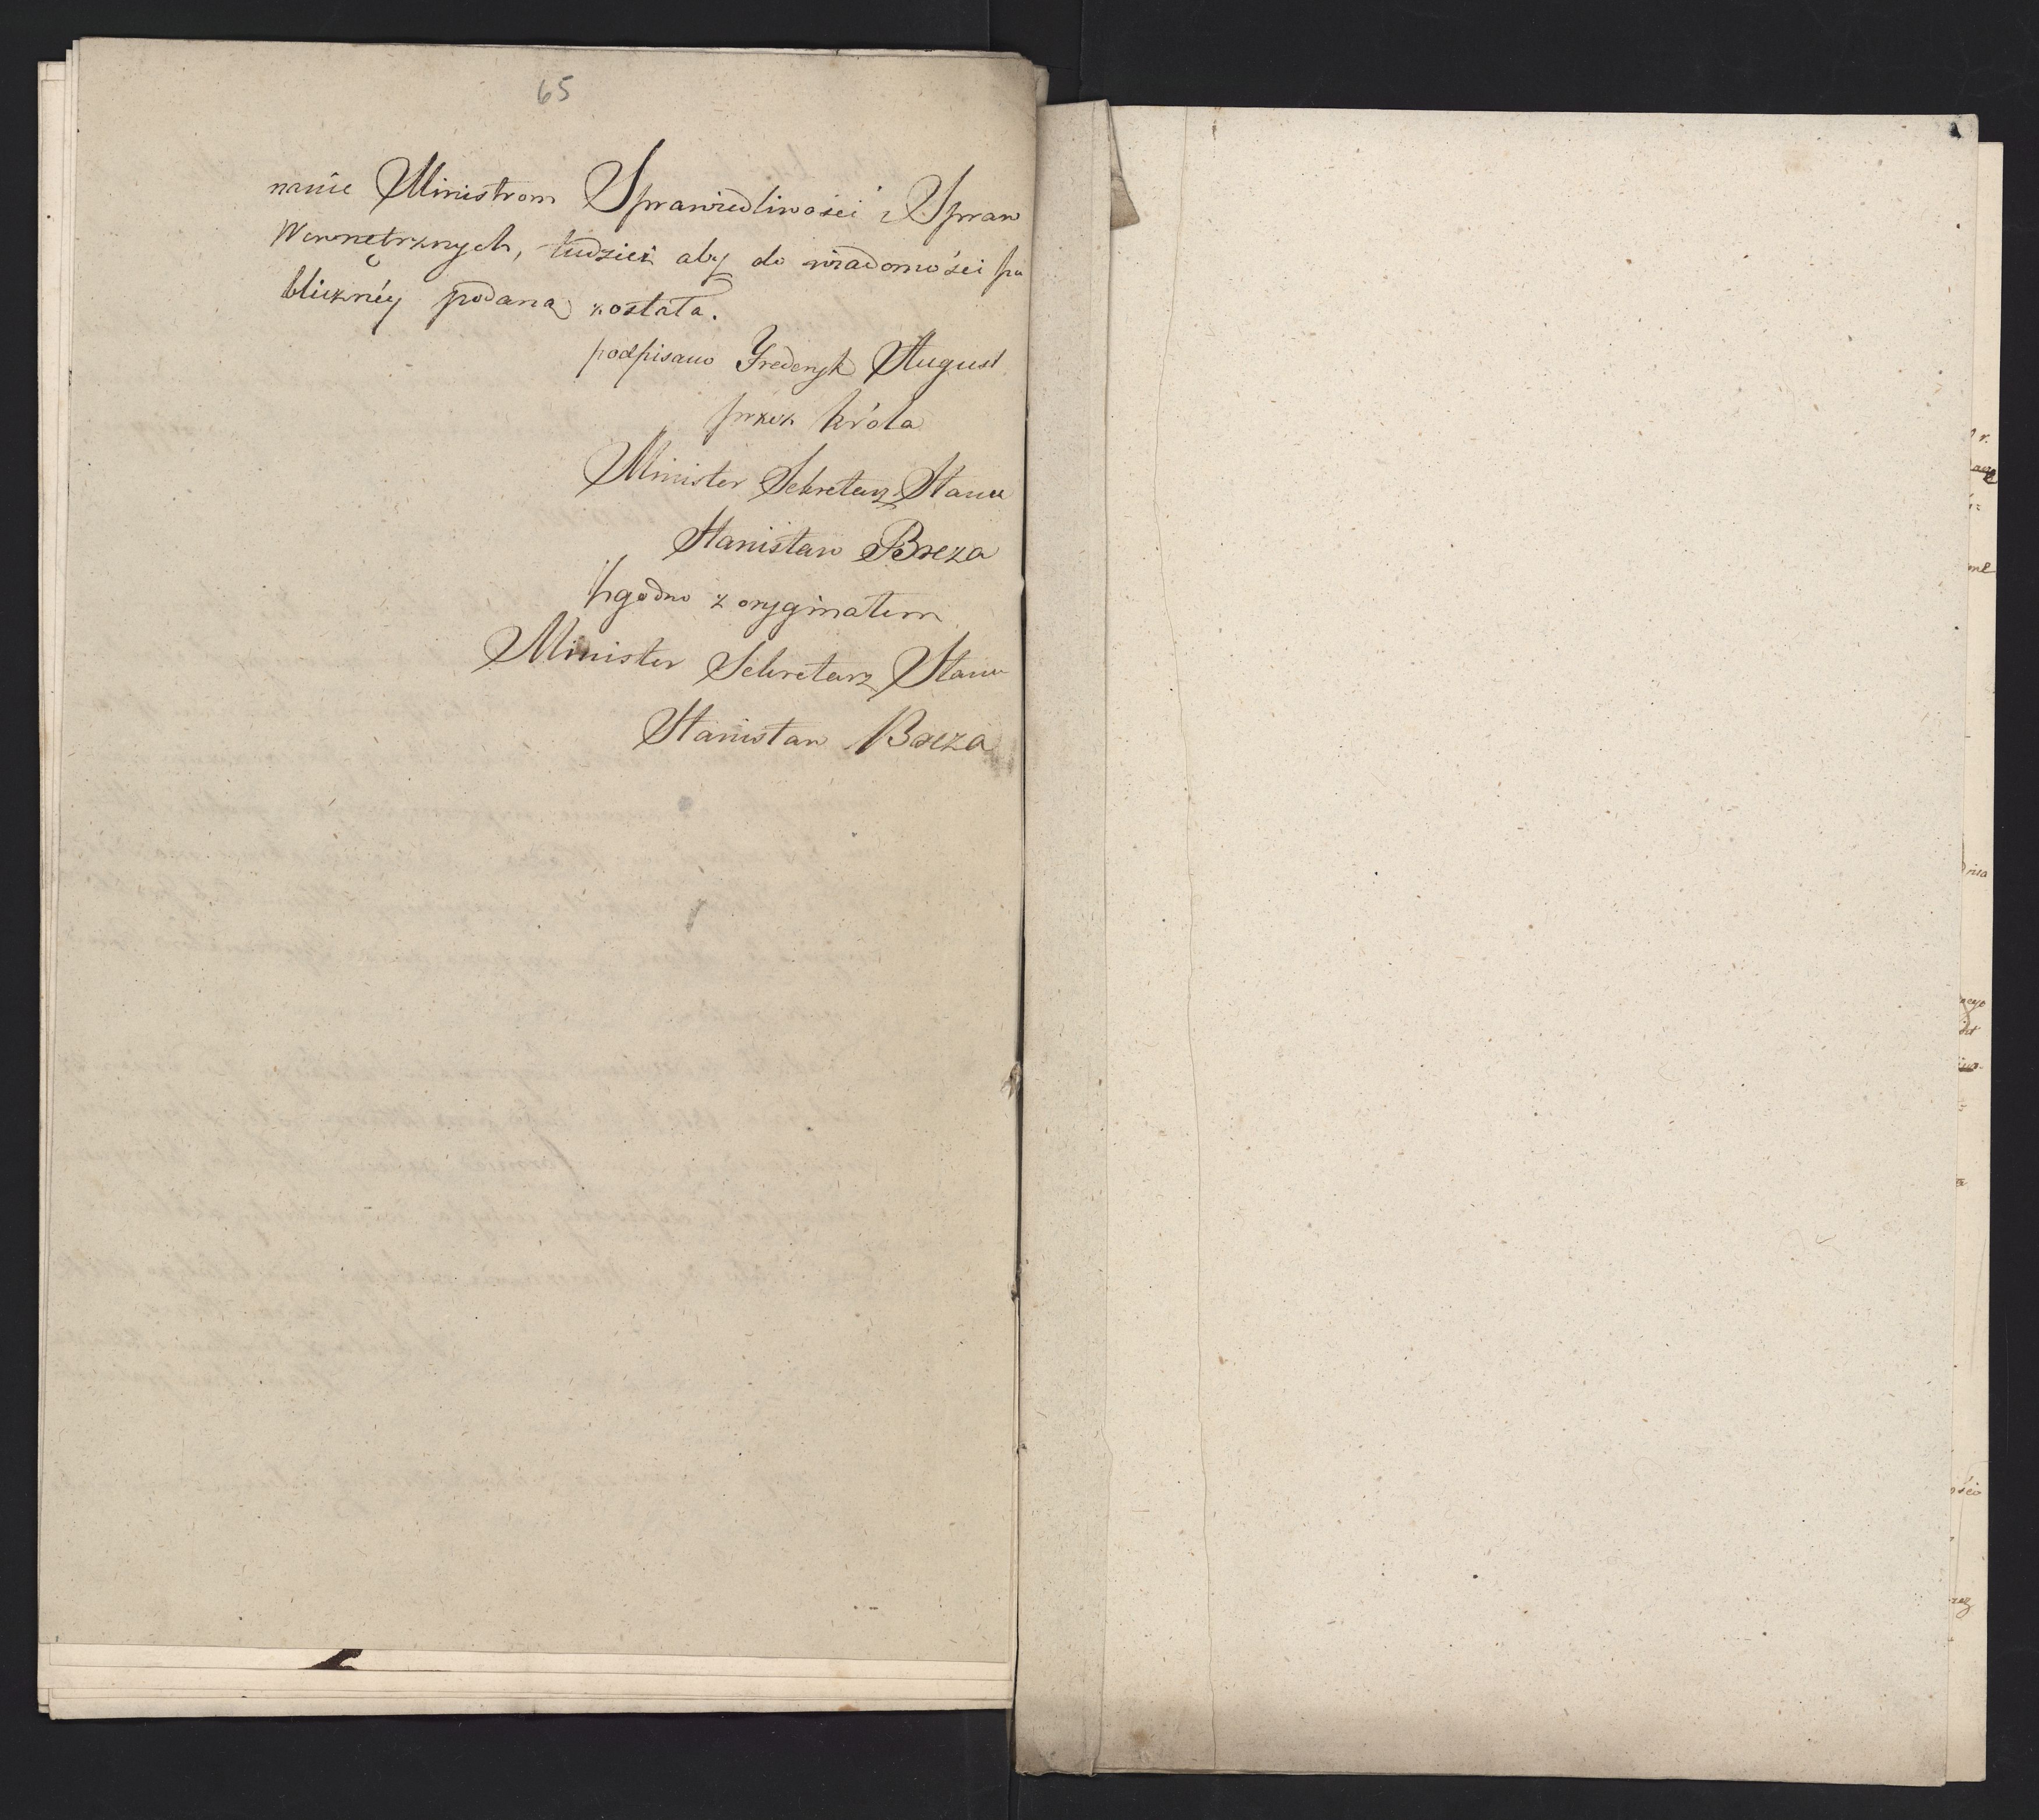 65
nanie Ministrom Sprawiedliwości i Spraw
Wewnętrznych, tudzież aby do wiadomości pu
blicznéy podana została.
podpisano Frederyk August
przez króla
Minister Sekretarz Stanu
Stanisław Breza
Zgodno z oryginałem
Minister Sekretarz Stanu
Stanisław Breza